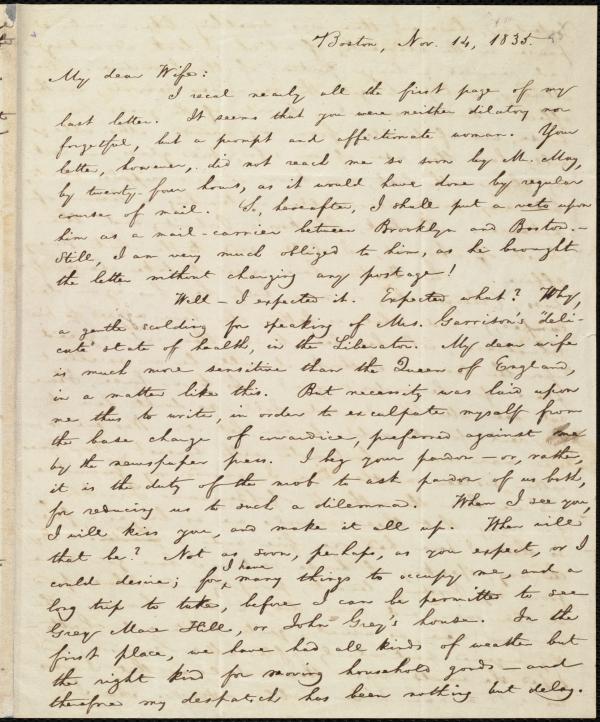 Boston, Nov. 14, 1835.
My dear Wife:
I recal nearly all the first page of my
last letter. It seems that you were neither dilatory nor
forgetful, but a prompt and affectionate woman. Your
letter, however, did not reach me so soon by Mr. May,
by twenty-four hours, as it would have done by regular
course of mail. So, hereafter, I shall put a veto upon
him as a mail-carrier between Brooklyn and Boston.—
Still, I am very much obliged to him, as he brought
the letter without charging any postage!
Well—I expected it. Expected what? Why,
a gentle scolding for speaking of Mrs. Garrison's "deli-
cate" state of health, in the Liberator. My dear wife
is much more sensitive than the Queen of England,
in a matter like this. But necessity was laid upon
me thus to write, in order to exculpate myself from
the base charge of cowardice, preferred against me
by the newspaper press. I beg your pardon—or, rather,
it is the duty of the mob to ask pardon of us both,
for reducing us to such a dilemma. When I see you,
I will kiss you, and make it all up. When will
that be? Not as soon, perhaps, as you expect, or I
could desire; for I have many things to occupy me, and a
long trip to take, before I can be permitted to see
Grey Mare Hill, or John Grey's house. In the
first place, we have had all kinds of weather but
the right kind for moving household goods—and
therefore my despatch has been nothing but delay.